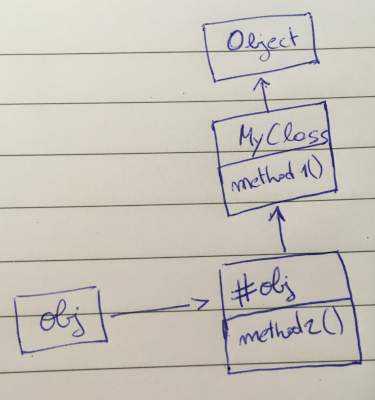 Object
MyClass
method1()
#obj
obj
method2()